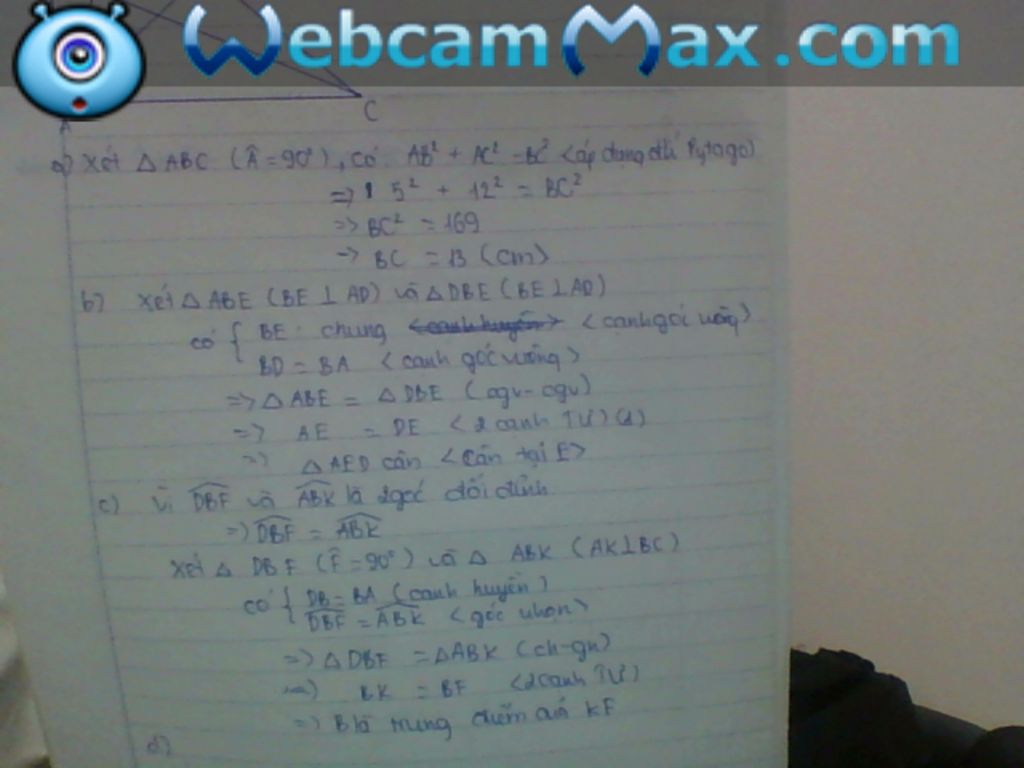 WebcamMax.com
C
A
a) Xét △ ABC (Â = 90°), có AB² + AC² = BC² <áp dụng đlí Pytago>
=> 5² + 12² = BC²
=> BC² = 169
=> BC = 13 (cm)
b) Xét △ ABE (BE ⊥ AD) và △ DBE (BE ⊥ AD)
có { BE: chung <cạnh huyền> <cạnh góc vuông>
BD = BA <cạnh góc vuông>
=> △ ABE = △ DBE (cgv - cgv)
=> AE = DE <2 cạnh TƯ> (1)
=> △ AED cân <cân tại E>
c) Vì DBF và ABK là 2 góc đối đỉnh
=> DBF = ABK
Xét △ DBF (F̂ = 90°) và △ ABK (AK ⊥ BC)
có { DB = BA (cạnh huyền)
DBF = ABK <góc nhọn>
=> △ DBF = △ ABK (ch-gn)
=> BK = BF <2 cạnh TƯ>
=> B là trung điểm của KF
d)